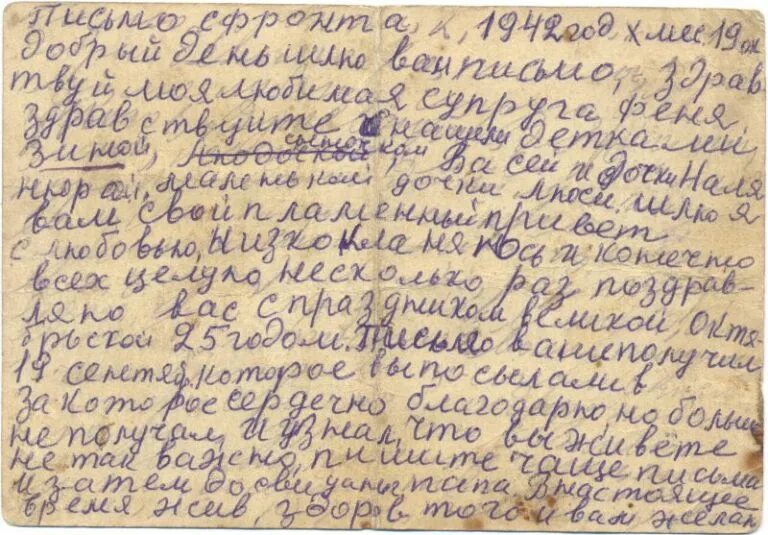 письмо с фронта, 1942 год х ми. 19 ок
добрый день шлю вам письмо, здрав
твуй моя любимая супруга феня
здравствуите с нашими детками
зиной, сыночком Васей и дочки Наля
нюрой, маленькой дочки люси шлю я
вам свой пламенный привет
с любовью, низко кланяюсь и конечно
всех целую несколько раз поздрав-
ляю вас с праздником великой октя-
брьской 25 годом. Письмо ваше получил
19 сентяб, которое вы посылали в
за которое сердечно благодарю, но больше
не получал, и узнал, что вы живёте
не так важно, пишите чаще письма
и затем до свиданья папа В настоящее
время жив, здоров того и вам желаю